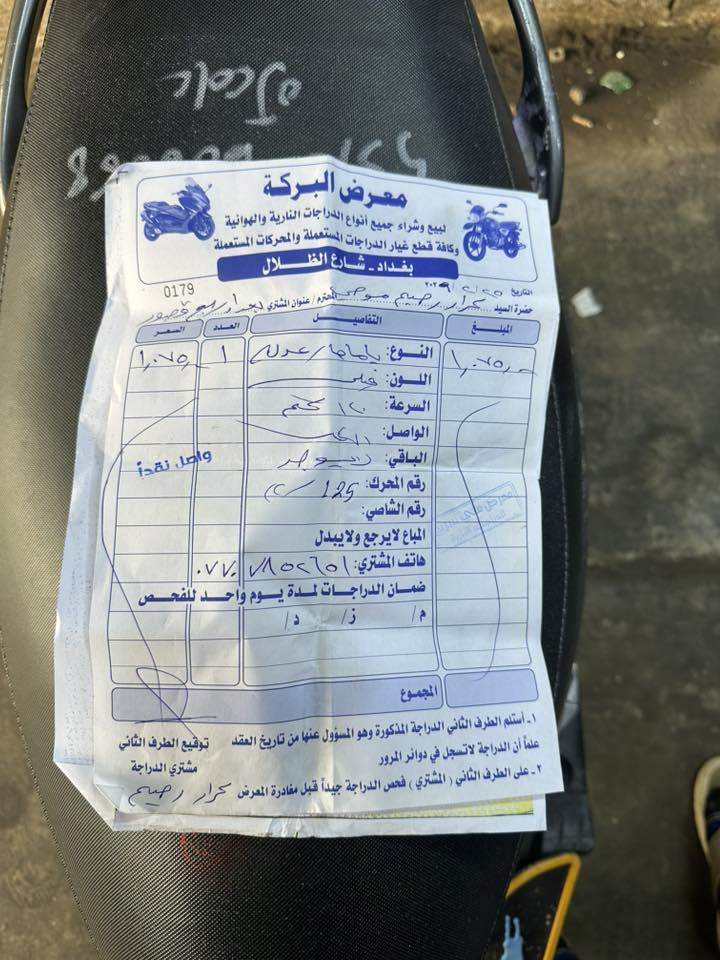 معرض البركة
لبيع وشراء جميع أنواع الدراجات النارية والهوائية
وكافة قطع غيار الدراجات المستعملة والمحركات المستعملة
بغداد - شارع الظلال
0179
التاريخ
حضرة السيد كرار رحيم المحترم / عنوان المشتري بغداد
المبلغ التفاصيل العدد السعر
١,٠٧٥,٠٠٠ النوع: ياماها ١ ١,٠٧٥,٠٠٠
اللون:
السرعة: ١٢٠ كم
الواصل:
الباقي: لايوجد
واصل نقداً
رقم المحرك: 125
رقم الشاصي:
المباع لايرجع ولايبدل
هاتف المشتري:
ضمان الدراجات لمدة يوم واحد للفحص
م/ ز/ د/
المجموع
١ـ أستلم الطرف الثاني الدراجة المذكورة وهو المسؤول عنها من تاريخ العقد
علماً أن الدراجة لاتسجل في دوائر المرور
٢ـ على الطرف الثاني ( المشتري ) فحص الدراجة جيداً قبل مغادرة المعرض
توقيع الطرف الثاني
مشتري الدراجة
كرار رحيم